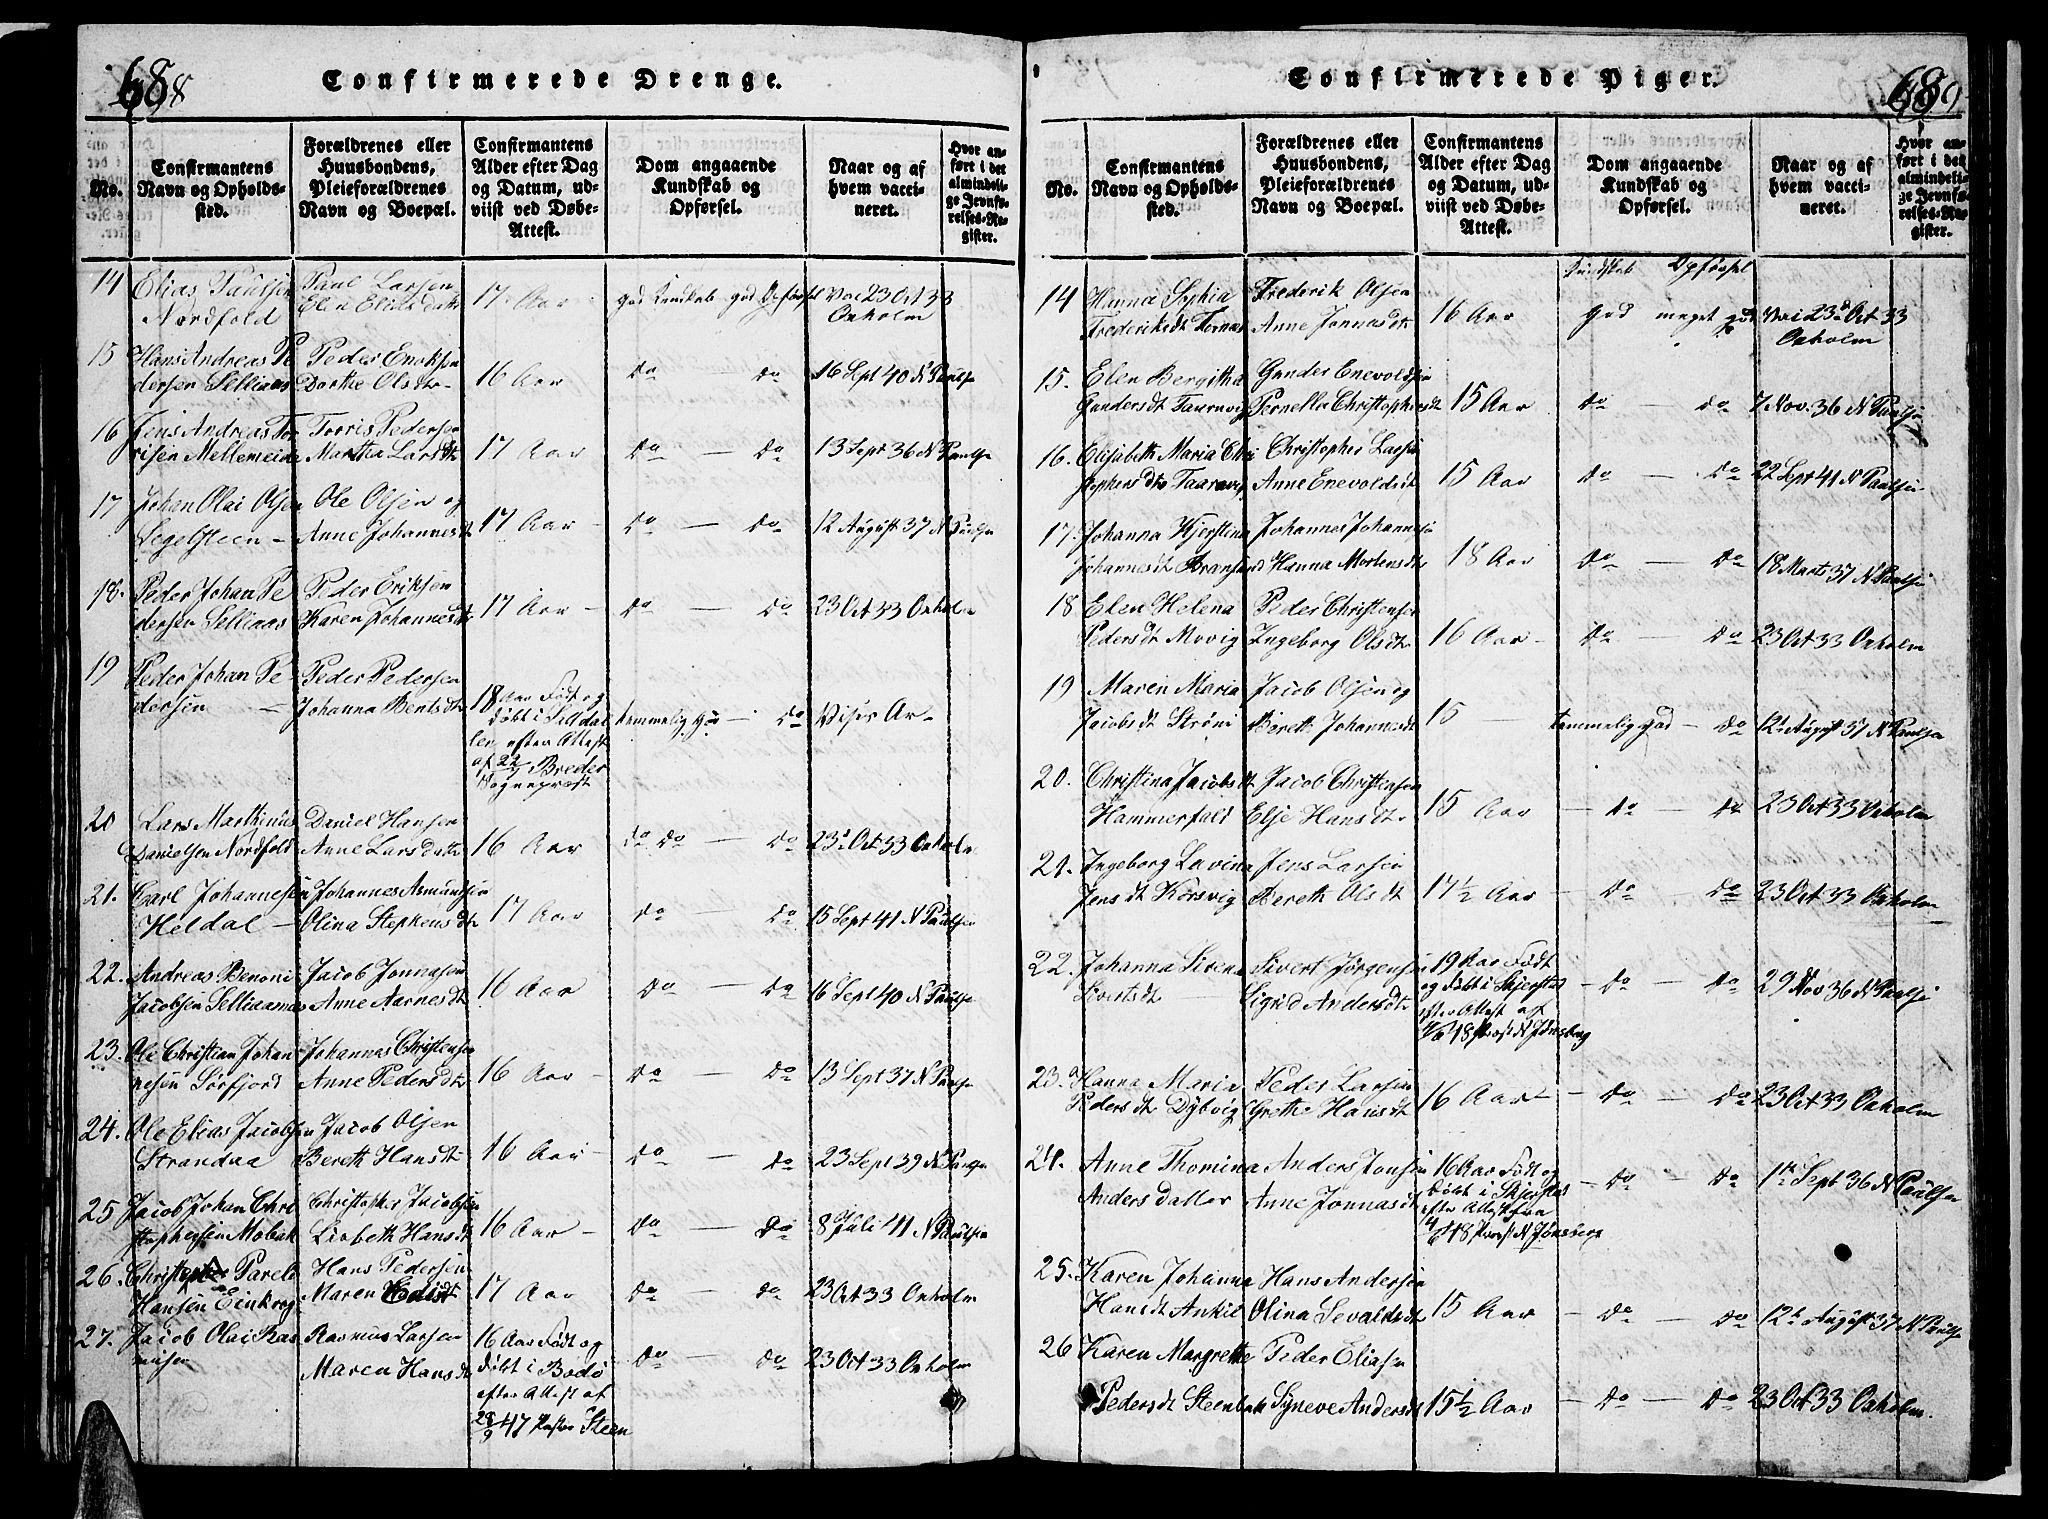 688
Confirmerede Drenge.
No.
Confirmantens Navn og Opholdssted.
Forældrenes eller Huusbondens, Pleieforældrenes Navn og Boepæl.
Confirmantens Alder efter Dag og Datum, udviist ved Døbe-Attest.
Dom angaaende Kundskab og Opførsel.
Naar og af hvem vaccineret.
Hvor anført i det almindelige Jevnførelses-Register.
14 Elias Paulsen Paul Larsen 17 Aar god Kundskab god Opførsel Vac 23 Oct 33
Nordfold Elen Elias datt Oxholm
15 Hans Andreas Pe Peder Enoksen 16 Aar do do 16 Sept 40 N Paulsen
dersen Selliaas Dorthe Olsdtr
16 Jens Andreas Tor Torris Pedersen 17 Aar do — do 13 Sept 36 N Paulsen
risen Mellemeide Martha Larsdtr
17 Johan Olai Olsen Ole Olsen og 17 Aar — do — do 12 August 37 N Paulsen
Segelsteen — Anne Johannesdt
18. Peder Johan Pe Peder Eriksen 17 Aar — do — do 23 Oct 33 Oxholm
dersen Selliaas Karen Johannesdt
19 Peder Johan Pe- Peder Pedersen 18 Aar Født og
dersen — Johanna Bentsdtr døbt i temmelig god — do Viser Ar —
efter Attest
af 22/7 Breder
Sognepræst
20 Lars Marthinus Daniel Hansen 16 Aar do do — do 23d Oct 33 Oxholm
Danielsen Nordfold Anne Lars datter
21. Carl Johannesen Johannes Asmundsen 17 Aar do — do 15 Sept 41 N Paulsen
Heldal — Olina Stephensdtr
22. Andreas Benoni Jacob Jonnasen 16 Aar do — do 16 Sept 40 N Paulsen
Jacobsen Selliaasmo Anne Aarnesdt
23. Ole Christian Johan- Johannas Christensen 16 Aar — do — do 13 Sept 37 N Paulsen
nesen Sörfjord Anne Pedersdtr
24. Ole Elias Jacobsen Jacob Olsen 16 Aar — do do 23 Sept 39 N Paulsen
Strandaa Bereth Hansdt
25 Jacob Johan Chri Christopher Jacobsen 16 Aar — do — do 8 Juli 41 N Paulsen
stophersen Mobak Lisbeth Hansdt
26. Hans Pedersen 17 Aar do — do 23 Oct 33 Oxholm
Hansen Maren
27. Jacob Olai Ras Rasmus Larsen 16 Aar Født og
musen Maren Hansdt døbt i Bodø do — do 23 Oct 33 Oxholm
efter Attest af
28/9 47 Pastor Steen
689
Confirmerede Piger.
No.
Confirmantens Navn og Opholdssted.
Forældrenes eller Huusbondens, Pleieforældrenes Navn og Boepæl.
Confirmantens Alder efter Dag og Datum, udviist ved Døbe-Attest.
Dom angaaende Kundskab og Opførsel.
Naar og af hvem vaccineret.
Hvor anført i det almindelige Jevnførelses-Register.
Kundskab Opførsel
14 Hanna Sophia Frederik Olsen 16 Aar god meget god Vac 23d Oct 33
Frederiksdt Anne Jonnasdtr Oxholm
15. Elen Bergitha Gunder Enevoldsen 15 Aar do — do 7 Nov. 36 N Paulsen
Gundersdt Taarnvig Pernella Christophersdt
16. Elisabeth Maria Chri Christopher Larsen 15 Aar do — do 22 Sept 41 N Paulsen
stophersdtr Taarnvig Anne Enevoldsdt
17. Johanna Kjerstina Johannes Johannesen 18 Aar do — do 18 Marts 37 N Paulsen
Johannesdt Hanna Mortensdtr
18 Elen Helena Peder Christensen 16 Aar — do — do 23 Oct 33 Oxholm
Pedersdt Movig Ingeborg Olsdtr
19 Maren Maria Jacob Olsen og 15 — temmelig god — do 12t August 37 N Paulsen
Jacobsdt Berett Johannesdt
20. Christina Jacobsdt Jacob Christensen 15 Aar — do — do 23 Oct 33 Oxholm
Hammerfald Else Hansdtr
21. Ingeborg Lavina Jens Larsen 17½ Aar — do — do 23 Oct 33 Oxholm
Jensdt Korsvig Bereth Olsdt
22. Johanna Sirena Sivert Jørgensen 19 Aar Født
Sivertsdt Sigrid Andersdtr og døbt i Skjerstad — do — do 29 Nov 36 N Paulsen
efter Attest af
4/6 48 Præst N Jønsberg
23. Hanna Maria Peder Larsen 16 Aar — do — do 23 Oct 33 Oxholm
Pedersdt Dybvig Grethe Hansdt
24. Anne Thomina Anders Jonsen 16 Aar Født og
Anders datter Anne Jonnasdt døbt i Skjerstad — do — do 1te Sept 36 N Paulsen
efter Attest fra
4/6 48 Præst N Jønsberg
25. Karen Johanna Hans Andersen
Hansdt Ankil Olina Sevaldsdt 15 Aar — do — do 12te August 37 N Paulsen
26 Karen Margrethe Peder Eliasen
Pedersdt Steenbak Syneve Andersdt 15½ Aar — do — do 23 Oct 33 Oxholm.